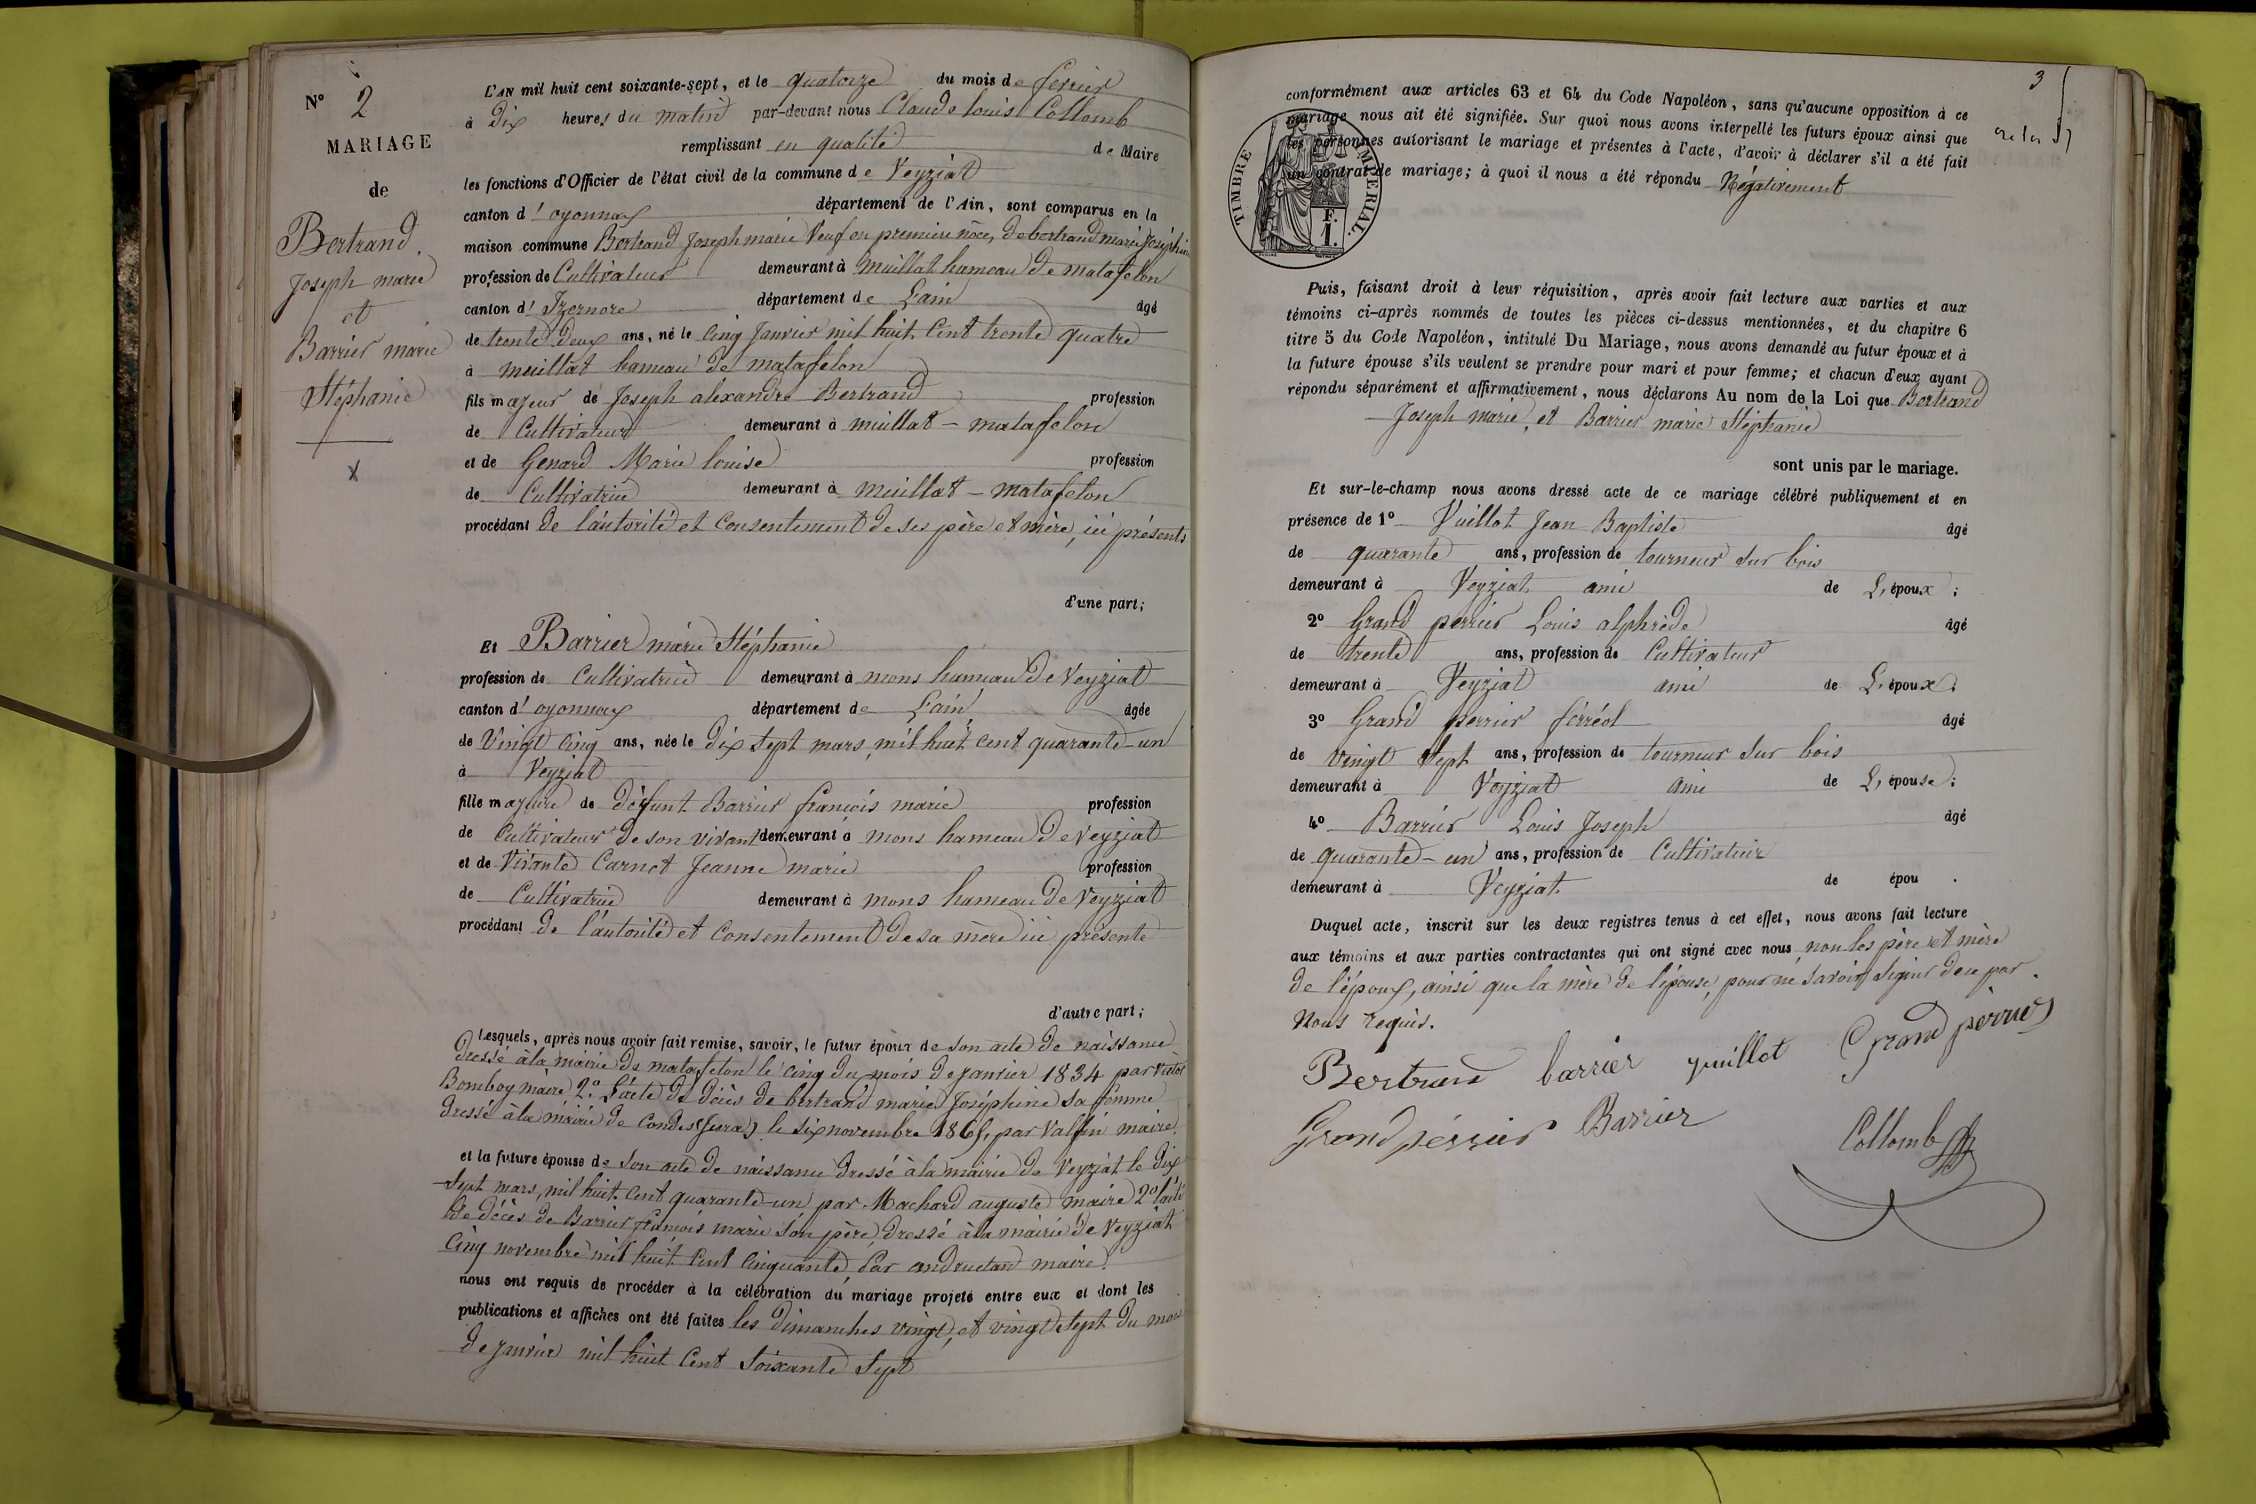 N° 2
MARIAGE
de
Bertrand
Joseph marie
et
Barrier marie
Stéphanie
L'AN mil huit cent soixante-sept, et le quatorze du mois de fevrier
à dix heures du matin par-devant nous Claude Louis Collomb
remplissant en qualité de Maire
les fonctions d'Officier de l'état civil de la commune de Veyziat
canton d'oyonnax département de l'Ain, sont comparus en la
maison commune Bertrand Joseph marie Veuf en première nôce, de bertrand marie Joséphine
profession de Cultivateur demeurant à meuillat hameau de matafelon
canton d'Izernore département de L'ain âgé
de trente deux ans, né le cinq Janvier mil huit cent trente quatre
à meuillat hameau de matafelon
fils majeur de Joseph alexandre Bertrand profession
de Cultivateur demeurant à meuillat - matafelon
et de Genard Marie louise profession
de Cultivatrice demeurant à meuillat - matafelon
procédant de l'autorité et consentement de ses père et mère, ici présents
d'une part;
Et Barrier marie Stéphanie
profession de Cultivatrice demeurant à mons hameau de Veyziat
canton d'oyonnax département de L'ain âgée
de Vingt cinq ans, née le dix sept mars, mil huit cent quarante-un
à Veyziat
fille majeure de défunt Barrier françois marie profession
de Cultivateur de son vivant demeurant à mons hameau de Veyziat
et de Vivante Carnot Jeanne marie profession
de Cultivatrice demeurant à mons hameau de Veyziat
procédant de l'autorité et consentement de sa mère ici présente
d'autre part;
Lesquels, après nous avoir fait remise, savoir, le futur époux de son acte de naissance
dressé à la mairie de matafelon le cinq du mois de janvier 1834 par Victor
Bomboy maire 2° L'acte de décès de bertrand marie Joséphine sa femme
dressé à la mairie de Condes (jura) le six novembre par Valfin maire
et la future épouse de Son acte de naissance dressé à la mairie de Veyziat le dix
-sept mars, mil huit cent quarante-un par Machard auguste maire 2° l'acte
de décès de Barrier françois marie son père, dressé à la mairie de Veyziat
cinq novembre mil huit cent cinquante, par maire
nous ont requis de procéder à la célébration du mariage projeté entre eux et dont les
publications et affiches ont été faites les dimanches vingt, et vingt sept du mois
de janvier mil huit cent soixante sept
3
conformément aux articles 63 et 64 du Code Napoléon, sans qu'aucune opposition à ce
mariage nous ait été signifiée. Sur quoi nous avons interpellé les futurs époux ainsi que
les personnes autorisant le mariage et présentes à l'acte, d'avoir à déclarer s'il a été fait
un contrat de mariage; à quoi il nous a été répondu Négativement
TIMBRE IMPERIAL.
F.
1.
Puis, faisant droit à leur réquisition, après avoir fait lecture aux parties et aux
témoins ci-après nommés de toutes les pièces ci-dessus mentionnées, et du chapitre 6
titre 5 du Code Napoléon, intitulé Du Mariage, nous avons demandé au futur époux et à
la future épouse s'ils veulent se prendre pour mari et pour femme; et chacun d'eux ayant
répondu séparément et affirmativement, nous déclarons Au nom de la Loi que Bertrand
Joseph marie, et Barrier marie Stéphanie
sont unis par le mariage.
Et sur-le-champ nous avons dressé acte de ce mariage célébré publiquement et en
présence de 1° Vuillot Jean Baptiste âgé
de quarante ans, profession de tourneur sur bois
demeurant à Veyziat ami de L'époux;
2° Grand perrier Louis alphrède âgé
de trente ans, profession de Cultivateur
demeurant à Veyziat ami de L'époux;
3° Grand perrier férréol âgé
de vingt sept ans, profession de tourneur sur bois
demeurant à Veyziat ami de L'épouse;
4° Barrier Louis Joseph âgé
de quarante-un ans, profession de Cultivateur
demeurant à Veyziat de épou .
Duquel acte, inscrit sur les deux registres tenus à cet effet, nous avons fait lecture
aux témoins et aux parties contractantes qui ont signé avec nous non les père et mère
de l'époux, ainsi que la mère de l'épouse, pour ne savoir signer de ce par
Nous requis.
Bertrand barrier vuillot Grand perrier
Grand pérrier Barrier Collomb